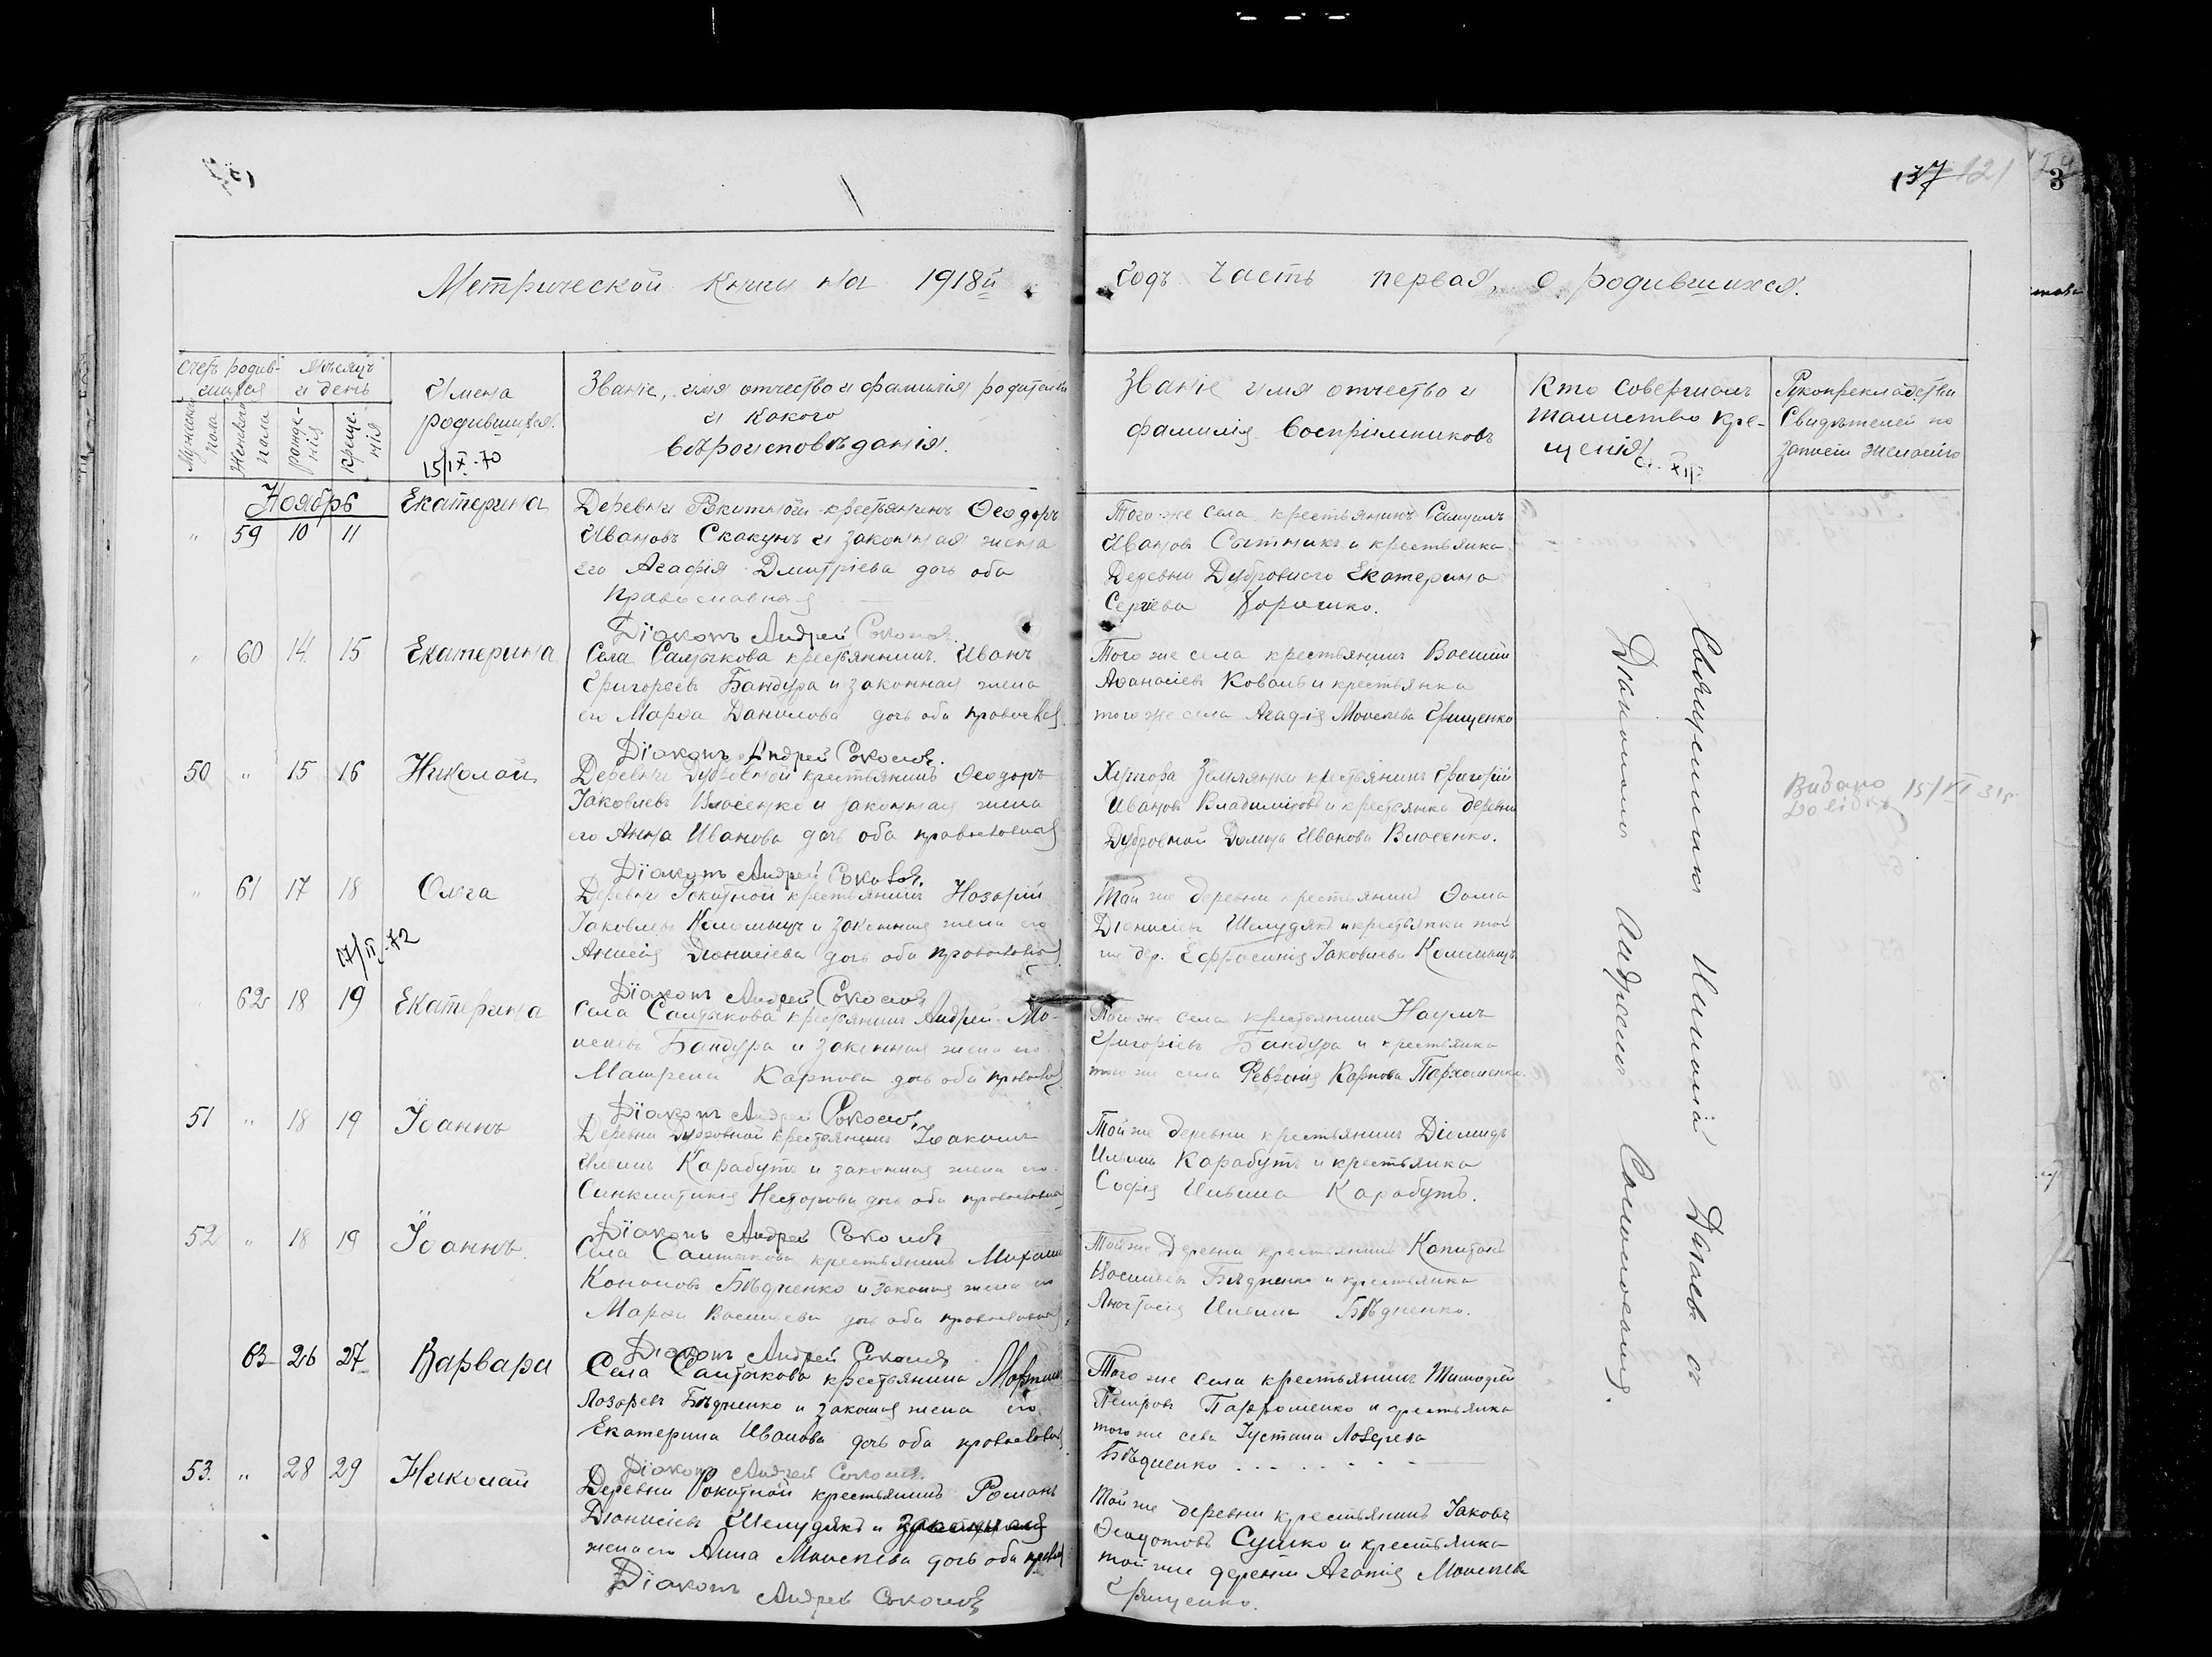 137 121
3
Метрической книги на 1918й
годъ часть первая, о родившихся.
Счетъ родив-
шихся
Мѣсяцъ
и день
Мужеска
пола
Женскаго
пола
рожде-
нія
креще-
нія
Имена
родившихся.
15/IX-70
Званіе, имя отчество и фамилія родителей
и какого
вѣроисповѣданія.
Званіе имя отчество и
фамилія воспріемниковъ
Кто совершалъ
таинство кре-
щенія
Рукоприкладство
Свидѣтелей по
записи желанію
Ноябрь
" 59 10 11 Екатерина
Деревни Ракитной крестьянинъ Ѳеодоръ
Ивановъ Скакунъ и законная жена
его Агафія Дмитріева дочь оба
православная
Діаконъ Андрей Соколов.
Того же села крестьянинъ Самуилъ
Ивановъ Сытникъ и крестьянка
Деревни Дубровного Екатерина
Сергіева
" 60 14 15 Екатерина
Села Салтыкова крестьянинъ Иванъ
Григорьевъ Бандура и законная жена
его Марѳа Данилова дочь оба православ.
Діаконъ Андрей Соколов.
Того же села крестьянинъ Василій
Аѳанасіевъ Коваль и крестьянка
того же села Агафія Моисеева Грищенко
50 " 15 16 Николай
Деревни Дубровной крестьянинъ Ѳеодоръ
Іаковлевъ Власенко и законная жена
его Анна Иванова дочь оба православная
Діаконъ Андрей Соколов.
Хутора Землянки крестьянинъ Григорій
Ивановъ Владиміровъ и крестьянка деревни
Дубровной Домна Иванова Власенко.
Видано 15/VI 31г.
Довідку
" 61 17 18 Ольга
17/II-72
Деревни Рокитной крестьянинъ Назарій
Іаковлевъ Коломыецъ и законная жена его
Анисія Діонисіева дочь оба православная
Діаконъ Андрей Соколов
Той же деревни крестьянинъ Ѳома
Діонисіевъ Шелудякъ и крестьянка той
же дер. Ефросинія Іаковлева Коломыецъ
" 62 18 19 Екатерина
Села Салтыкова крестьянинъ Андрей Мо-
исеевъ Бандура и законная жена его
Матрена Карпова дочь оба православ.
Діаконъ Андрей Соколов.
Того же села крестьянинъ Наумъ
Григоріевъ Бандура и крестьянка
того же села Февронія Карпова Пархоменко.
51 " 18 19 Іоаннъ
Деревни Дубровной крестьянинъ Іоакимъ
Ильинъ Карабутъ и законная жена его
Синклитикія Несторова дочь оба православная
Діаконъ Андрей Соколов
Той же деревни крестьянинъ Діомидъ
Ильинъ Карабутъ и крестьянка
Софія Ильина Карабутъ.
52 " 18 19 Іоаннъ
Села Салтыкова крестьянинъ Михаилъ
Кононовъ Бѣдненко и законная жена его
Марѳа Васильева дочь оба православная,
Діаконъ Андрей Соколов
Той же Деревни крестьянинъ Капитонъ
Васильевъ Бѣдненко и крестьянка
Анастасія Ильина Бѣдненко.
63 26 27 Варвара
Села Салтыкова крестьянина Мартинъ
Лазаревъ Бѣдненко и законная жена его
Екатерина Иванова дочь оба православная
Діаконъ Андрей Соколов.
Того же села крестьянинъ Тимоѳей
Петровъ Пархоменко и крестьянка
того же села Іустина Лазарева
Бѣдненко
53. " 28 29 Николай
Деревни Рокитной крестьянинъ Романъ
Діонисіевъ Шелудякъ и законная
жена его Анна Моисеева дочь оба правос
Діаконъ Андрей Соколов
Той же деревни крестьянинъ Іаковъ
Ѳеодотовъ Сушко и крестьянка
той же деревни Агапія Моисеева
Грищенко.
Священникъ Николай Дараевъ съ
Діакономъ Андреемъ Соколовымъ.